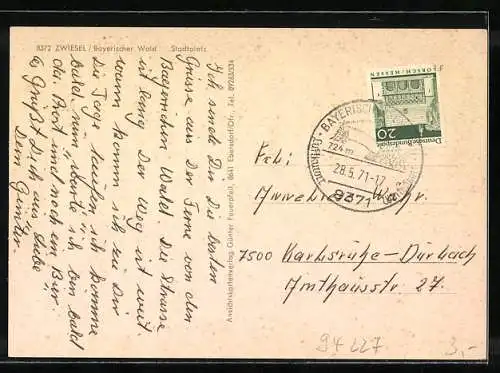 8372 ZWIESEL / Bayerischer Wald Stadtplatz
Ich sende Dir die besten
Grüsse aus der Ferne von den
Bayerischen Wald. Die Strasse
ist lang Der Weg ist weit.
wann komm ich zu Dir
Die Tage laufen, ich komme
bald, nun warte ich bin bald
da. Prost und noch ein Bier.
Es Grüßt Dich aus Liebe
Dein Günter.
Ansichtskartenverlag Günter Feuerpfeil, 8641 Ebersdorf/Ofr., Tel. 09263/334
LORSCH/HESSEN
Deutsche Bundespost
20
BAYERISCH
724 m
28.5.71-17
8371
Luftkurort
Frl:
Annelie
7500 Karlsruhe-Durlach
Amthausstr. 27.
94227
3,-